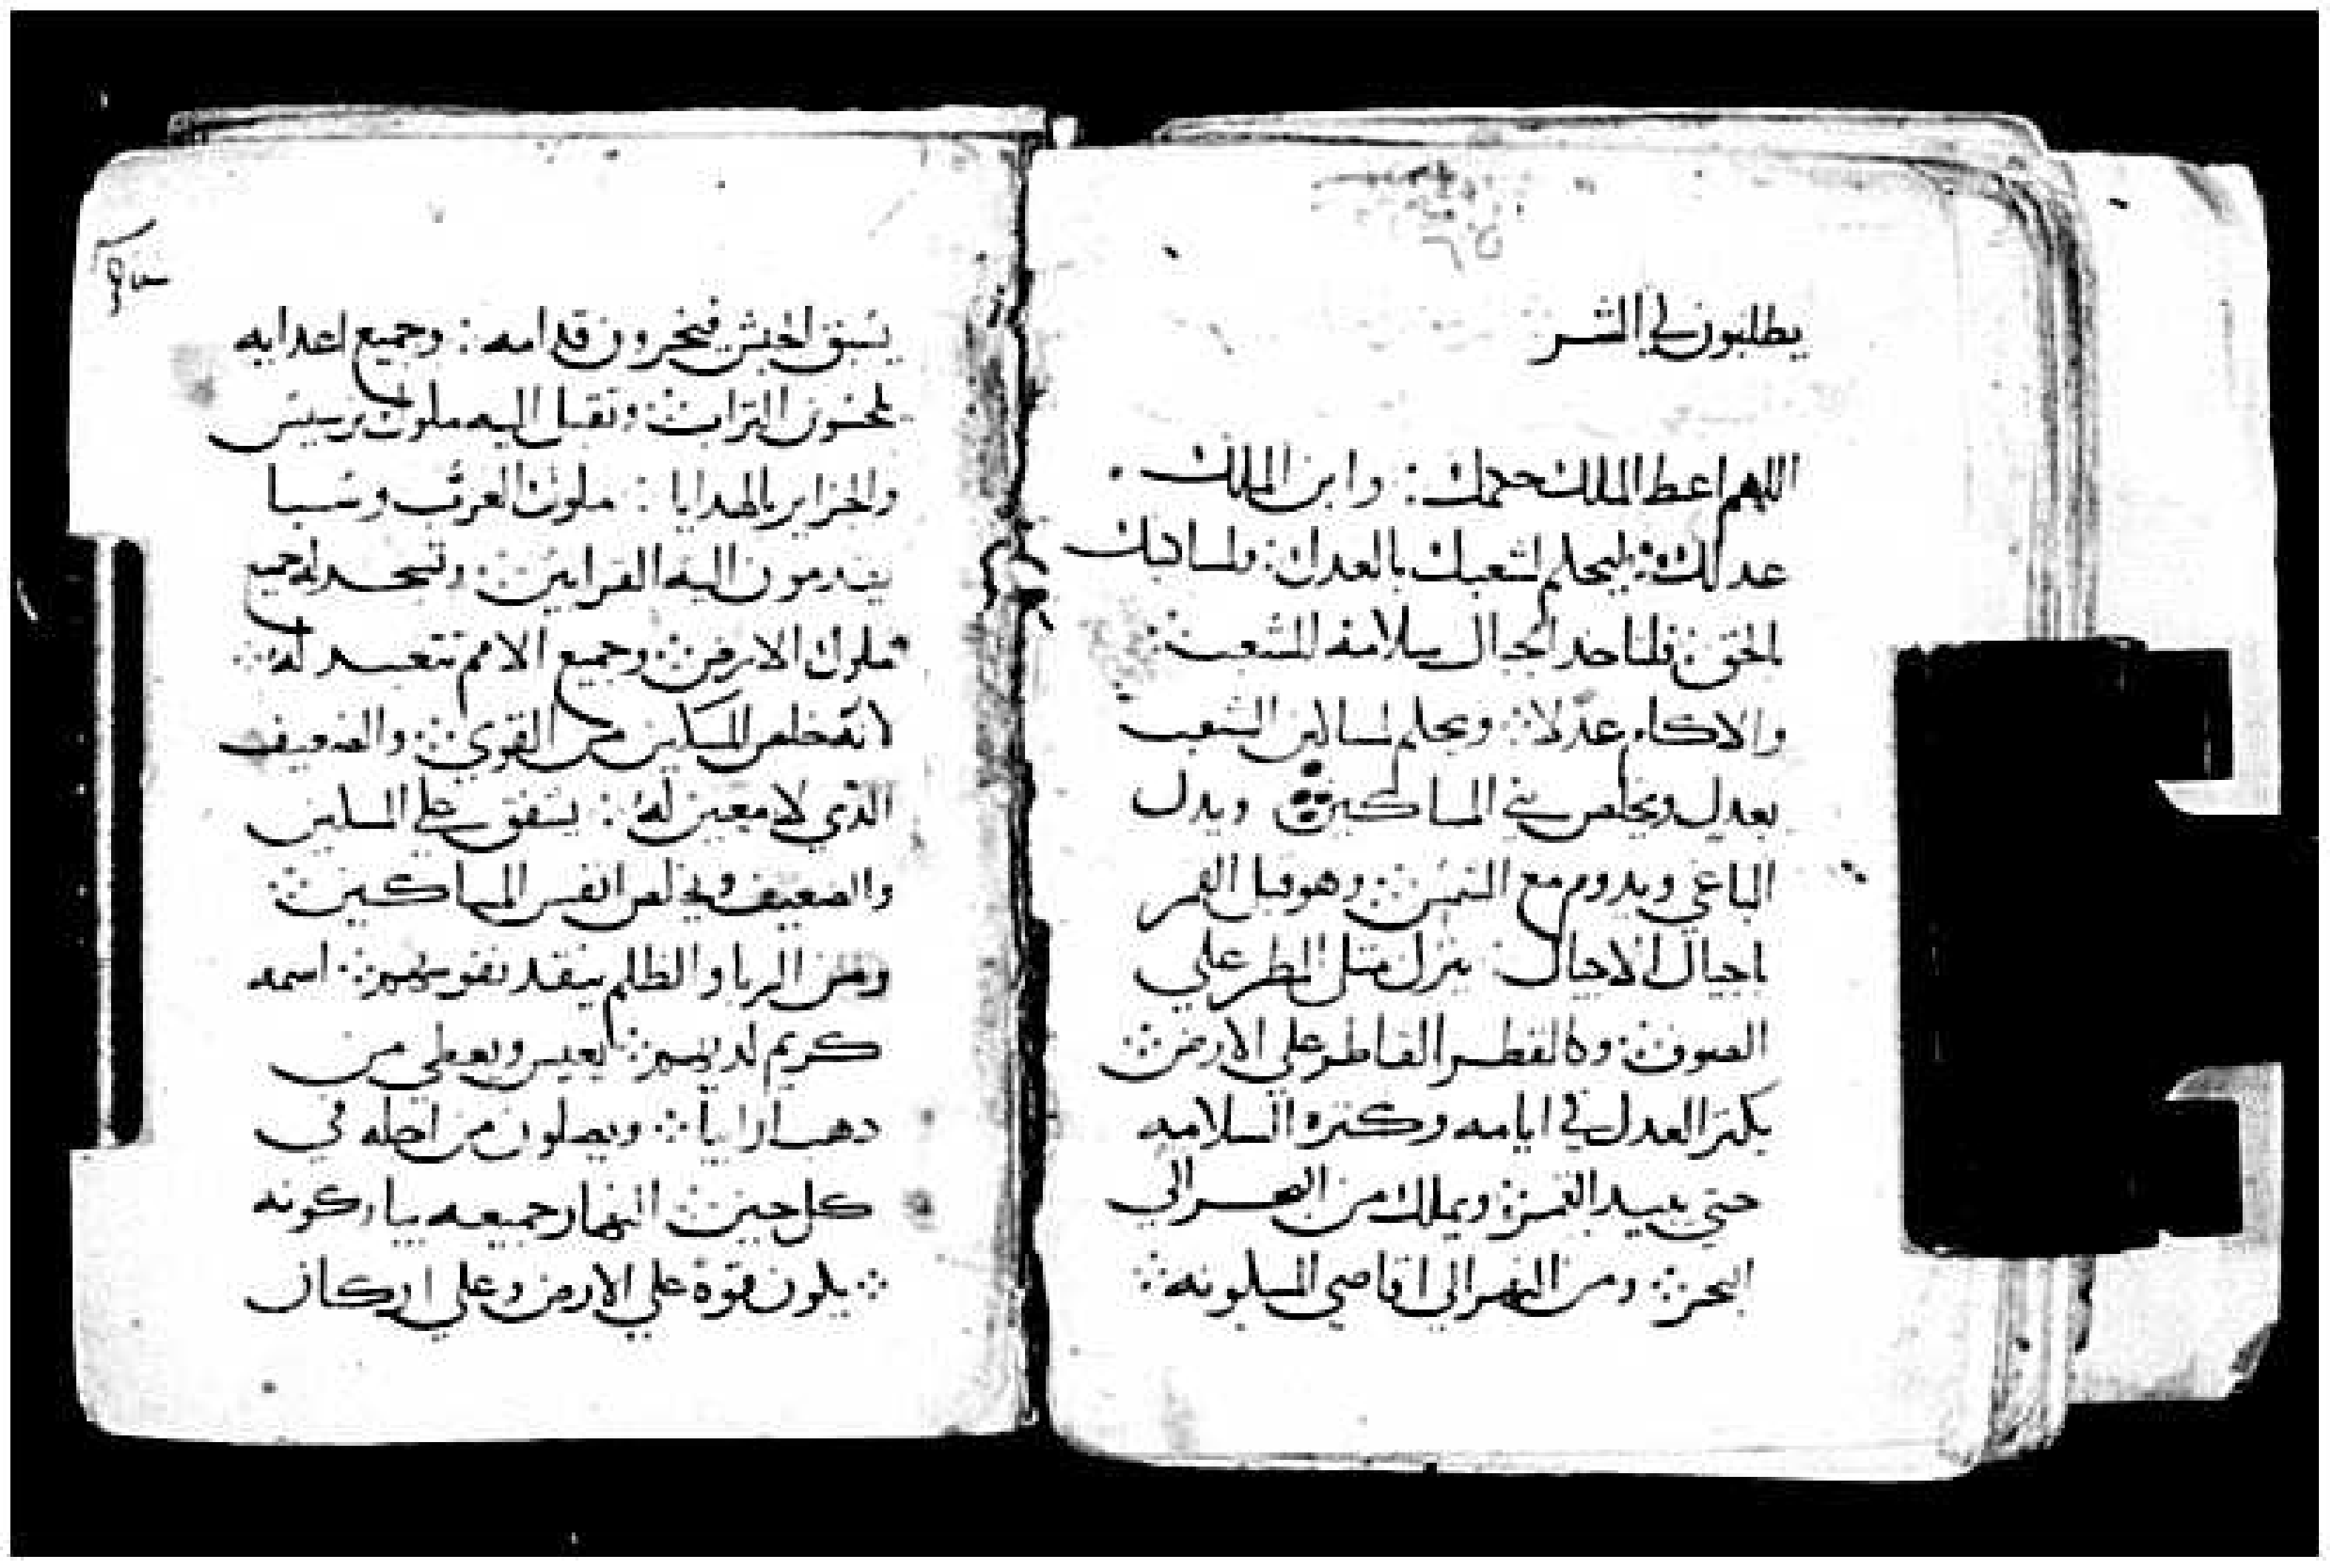 يطلبون لي الشر
اللهم اعط الملك حكمك: وابن الملك
عدلك: ليحكم لشعبك بالعدل: ولمساكينك
بالحق: فلتاخد الجبال سلامه للشعب:
والاكام عدلا: ويحكم لمساكين الشعب
بعدل ويخلص بني المساكين ويدل
الباغي ويدوم مع الشمس: وهو قبل القمر
اجيال الاجيال: ينزل متل المطر علي
الصوف: وكالقطر القاطر علي الارض:
يكتر العدل في ايامه وكتره السلامه
حتي يبيد القمر: ويملك من البحر الي
البحر: ومن النهر الي اقاصي المسكونه:
يسبق الحبش فيخرون قدامه: وجميع اعدايه
يلحسون التراب: وتقبل اليه ملوك ترسيس
والجزاير بالهدايا: ملوك العرب وسبا
يقدمون اليه القرابين: وتسجد له جميع
ملوك الارض: وجميع الامم تتعبد له:
لانه خلص المسكين من القوي: والضعيف
الذي لا معين له: يشفق علي المسكين
والضعيف ويخلص انفس المساكين:
ومن الربا والظلم ينقد نفوسهم: اسمه
كريم لديهم: يعيس ويعطي من
دهب ارابيا: ويصلون من اجله في
كل حين: النهار جميعه يباركونه
يكون قوة علي الارض وعلي اركان